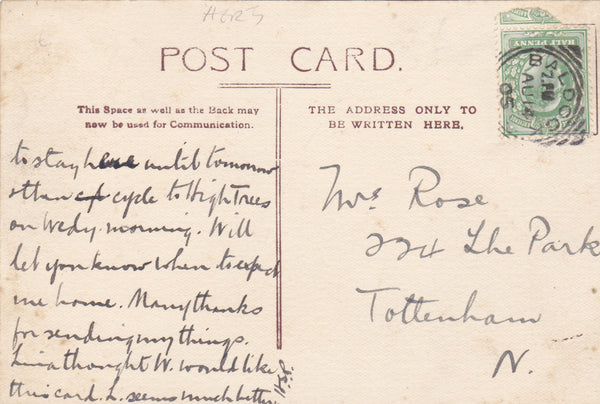 HERTS
POST CARD.
This Space as well as the Back may
now be used for Communication.
THE ADDRESS ONLY TO
BE WRITTEN HERE.
HALF PENNY
BALDOCK
AU 14
05
to stay here until tomorrow
& then cycle to High Trees
on Wedy. morning. Will
let you know when to expect
me home. Many thanks
for sending my things.
Lina thought W. would like
this card. L. seems much better.
Mrs Rose
224 The Park
Tottenham
N.